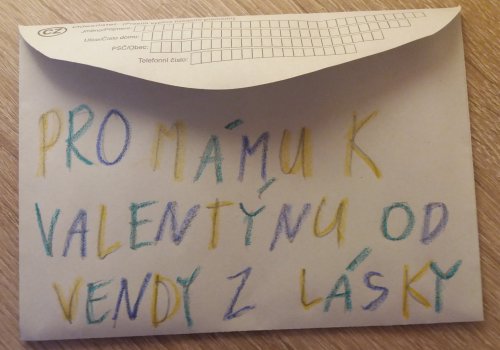 CZ
Jméno/Příjmení:
Ulice/Číslo domu:
PSČ/Obec:
Telefonní číslo:
PRO MÁMU K
VALENTÝNU OD
VENDY Z LÁSKY